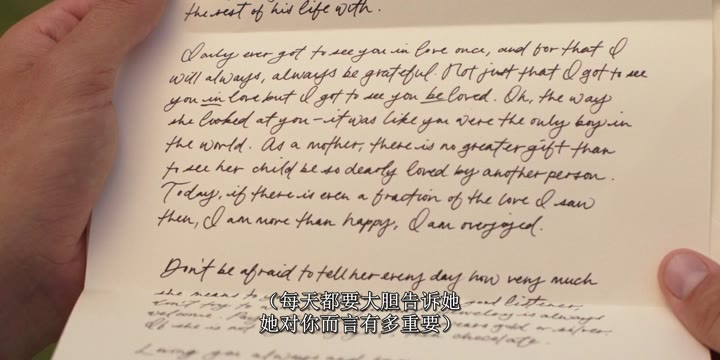 the rest of his life with.
I only ever got to see you in love once, and for that I
will always, always be grateful. Not just that I got to see
you in love but I got to see you be loved. Oh, the way
she looked at you - it was like you were the only boy in
the world. As a mother, there is no greater gift than
to see her child be so dearly loved by another person.
Today, if there is even a fraction of the love I saw
then, I am more than happy, I am overjoyed.
Don't be afraid to tell her every day how very much
she means to good listener,
（每天都要大胆告诉她
don't try to jewelry is always
她对你而言有多重要）
welcome. gold or silver.
If she is not chocolate.
Loving you always and